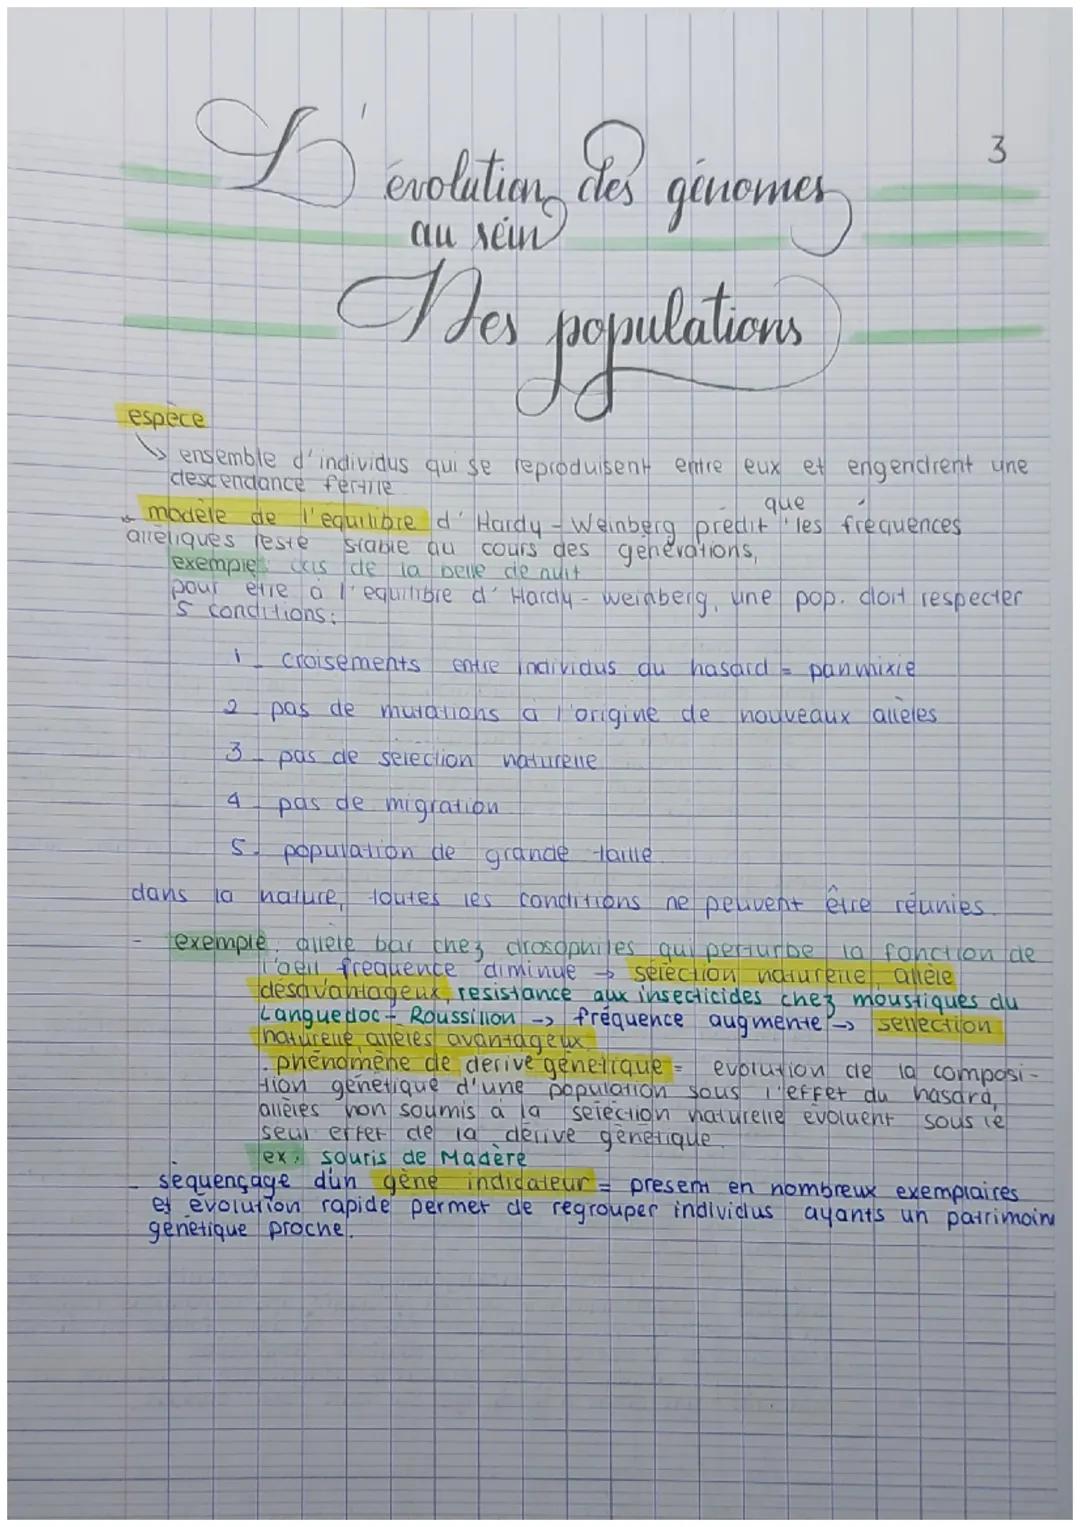 3
L'évolution des génomes
au sein
Des populations
espèce
↳ ensemble d'individus qui se reproduisent entre eux et engendrent une
descendance fertile
que
modèle de l'équilibre d'Hardy-Weinberg prédit les fréquences
alléliques reste stable au cours des générations,
exemple: cas de la belle de nuit
pour être à l'équilibre d'Hardy-Weinberg, une pop. doit respecter
5 conditions:
1_ croisements entre individus au hasard = panmixie
2_ pas de mutations à l'origine de nouveaux allèles
3_ pas de sélection naturelle
4_ pas de migration
5_ population de grande taille
dans la nature, toutes les conditions ne peuvent être réunies.
- exemple: allèle bar chez drosophiles qui perturbe la fonction de
l'oeil fréquence diminue → sélection naturelle allèle
désavantageux, résistance aux insecticides chez moustiques du
Languedoc-Roussillon → fréquence augmente → sellection
naturelle allèles avantageux.
. phénomène de dérive génétique = évolution de la composi-
tion génétique d'une population sous l'effet du hasard,
allèles non soumis à la sélection naturelle évoluent sous le
seul effet de la dérive génétique
ex: souris de Madère
- séquençage d'un gène indicateur = présent en nombreux exemplaires
et évolution rapide permet de regrouper individus ayants un patrimoin
génétique proche.